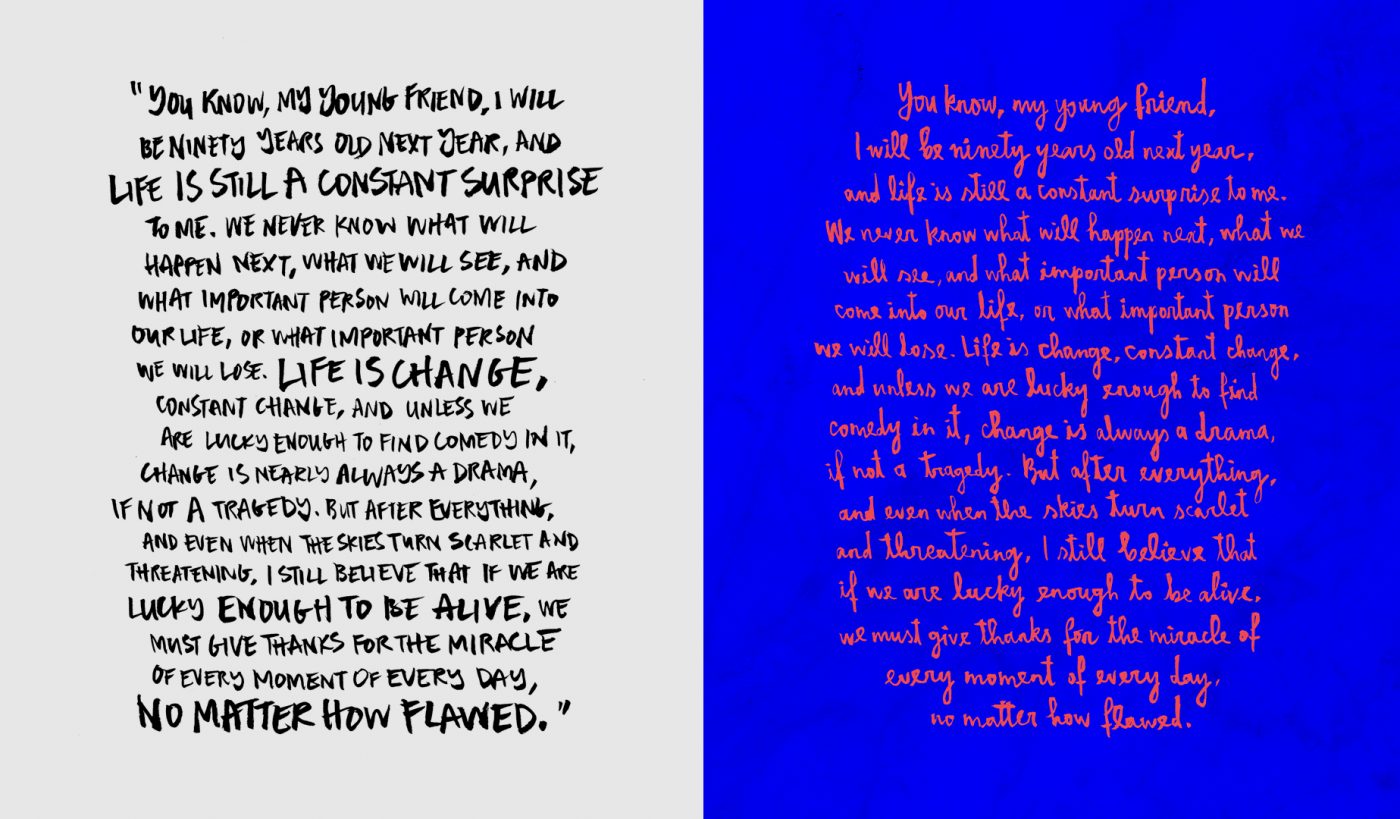 "YOU KNOW, MY YOUNG FRIEND, I WILL
BE NINETY YEARS OLD NEXT YEAR, AND
LIFE IS STILL A CONSTANT SURPRISE
TO ME. WE NEVER KNOW WHAT WILL
HAPPEN NEXT, WHAT WE WILL SEE, AND
WHAT IMPORTANT PERSON WILL COME INTO
OUR LIFE, OR WHAT IMPORTANT PERSON
WE WILL LOSE. LIFE IS CHANGE,
CONSTANT CHANGE, AND UNLESS WE
ARE LUCKY ENOUGH TO FIND COMEDY IN IT,
CHANGE IS NEARLY ALWAYS A DRAMA,
IF NOT A TRAGEDY. BUT AFTER EVERYTHING,
AND EVEN WHEN THE SKIES TURN SCARLET AND
THREATENING, I STILL BELIEVE THAT IF WE ARE
LUCKY ENOUGH TO BE ALIVE, WE
MUST GIVE THANKS FOR THE MIRACLE
OF EVERY MOMENT OF EVERY DAY,
NO MATTER HOW FLAWED."
You know, my young friend,
I will be ninety years old next year,
and life is still a constant surprise to me.
We never know what will happen next, what we
will see, and what important person will
come into our life, or what important person
we will lose. Life is change, constant change,
and unless we are lucky enough to find
comedy in it, change is always a drama,
if not a tragedy. But after everything,
and even when the skies turn scarlet
and threatening, I still believe that
if we are lucky enough to be alive,
we must give thanks for the miracle of
every moment of every day,
no matter how flawed.